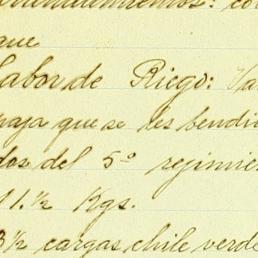 que
Labor de Riego: Va
paja que se les bendi
dos del 5º rejimie
11.½ Kgs.
3½ cargas chile verde